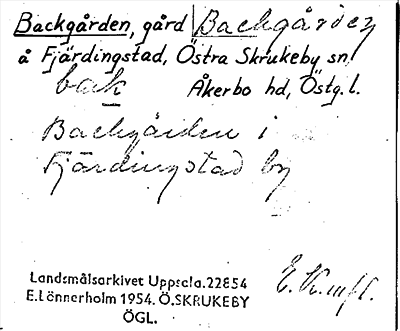 Backgården, gård Backgården
å Fjärdingstad, Östra Skrukeby sn,
bak Åkerbo hd, Östg. l.
Backgården i
Fjärdingstad by
Landsmålsarkivet Uppsala. 22854
E. Lönnerholm 1954. Ö. SKRUKEBY
ÖGL.